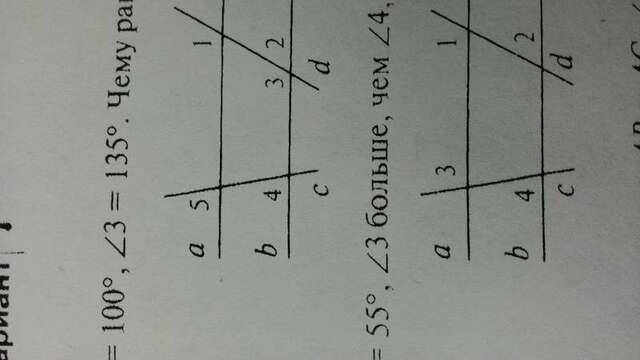 ариант
= 100°, ∠3 = 135°. Чему
a 5 1
b 4 3 2
c d
= 55°, ∠3 больше, чем ∠4,
a 3 1
b 4 2
c d